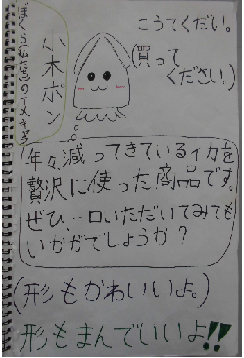 こうてくだい。
(買って
ください!)
小木ボン
年々減ってきているイカを
贅沢に使った商品です。
ぜひ、一口いただいてみても
いかがでしょうか?
(形もかわいいよ。)
形もまんでいいよ!!